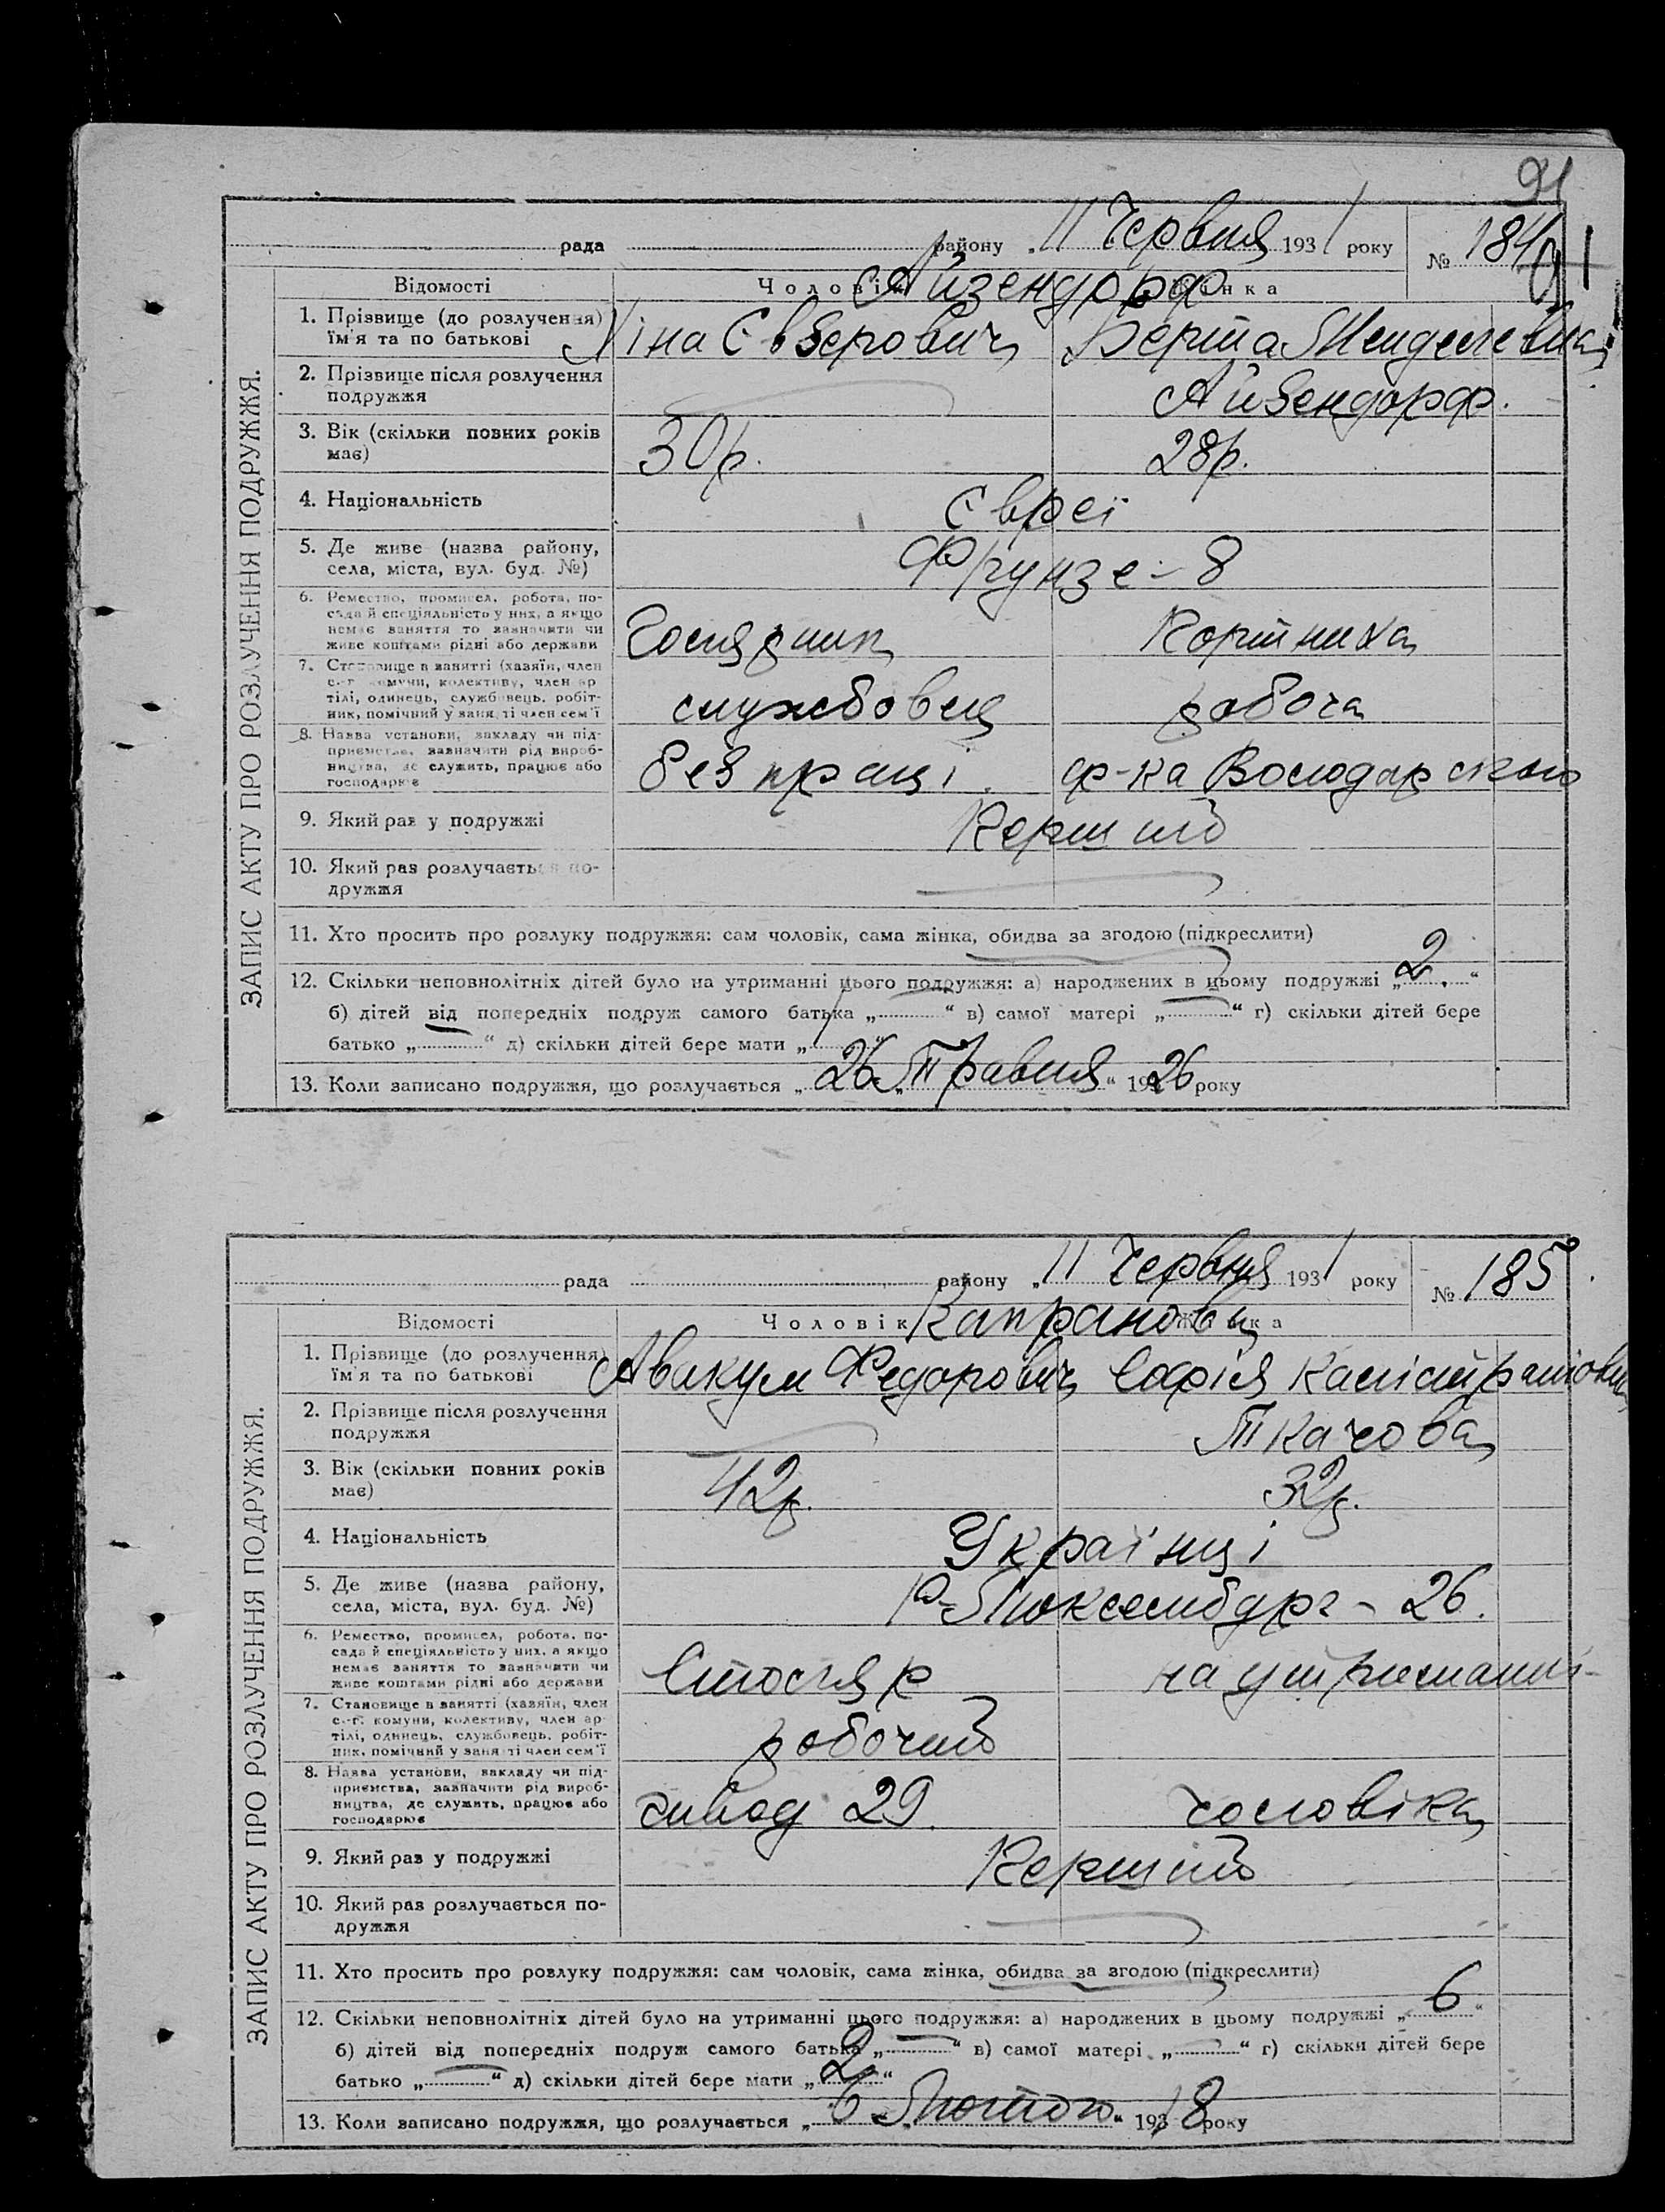 91
рада района „11 Червня 1931 року № 184
91
Відомості Чоловік Жінка
Айзендорф
1. Прізвище (до розлучення) ім'я та по батькові
Хіна Євзерович Берта Менделевна
2. Прізвище після розлучення подружжя
Айзендорф.
3. Вік (скільки повних років має)
30 р. 28 р.
4. Національність
Євреї
5. Де живе (назва району, села, міста, вул. буд. №)
Фрунзе - 8
6. Ремество, промисел, робота, посада й спеціяльність у них, а якщо немає заняття то зазначити чи живе коштами рідні або держави
7. Становище в занятті (хазяїн, член с.-г. комуни, колективу, член артілі, одинець, службовець, робітник, помічний у занятті член сем'ї
службовец робоча
8. Назва установи, закладу чи підприємства, зазначити рід виробництва, де служить, працює або господарює
без праці. ф-ка Володарского
9. Який раз у подружжі
Перший
10. Який раз розлучається подружжя
11. Хто просить про розлуку подружжя: сам чоловік, сама жінка, обидва за згодою (підкреслити)
12. Скільки неповнолітніх дітей було на утриманні цього подружжя: а) народжених в цьому подружжі „2“
б) дітей від попередніх подруж самого батька „ “ в) самої матері „ “ г) скільки дітей бере
батько „ “ д) скільки дітей бере мати „ “
13. Коли записано подружжя, що розлучається „26„ Травня “ 1926 року
ЗАПИС АКТУ ПРО РОЗЛУЧЕННЯ ПОДРУЖЖЯ.
рада району „11 Червня 1931 року № 185
Відомості Чоловік Жінка
Капранови
1. Прізвище (до розлучення) ім'я та по батькові
Авакум Федорович Софія Калістратовна
2. Прізвище після розлучення подружжя
Ткачова
3. Вік (скільки повних років має)
42 р. 32 р.
4. Національність
Українці
5. Де живе (назва району, села, міста, вул. буд. №)
Р-Люксембург - 26.
6. Ремество, промисел, робота, посада й спеціяльність у них, а якщо немає заняття то зазначити чи живе коштами рідні або держави
Столяр на утриманні
7. Становище в занятті (хазяїн, член с.-г. комуни, колективу, член артілі, одинець, службовець, робітник, помічний у занятті член сем'ї
робочий
8. Назва установи, закладу чи підприємства, зазначити рід виробництва, де служить, працює або господарює
завод 29. чоловіка
9. Який раз у подружжі
Перший
10. Який раз розлучається подружжя
11. Хто просить про розлуку подружжя: сам чоловік, сама жінка, обидва за згодою (підкреслити)
12. Скільки неповнолітніх дітей було на утриманні цього подружжя: а) народжених в цьому подружжі „6“
б) дітей від попередніх подруж самого батька „ “ в) самої матері „ “ г) скільки дітей бере
батько „ “ д) скільки дітей бере мати „2“
13. Коли записано подружжя, що розлучається „6„ Лютого “ 1918 року
ЗАПИС АКТУ ПРО РОЗЛУЧЕННЯ ПОДРУЖЖЯ.